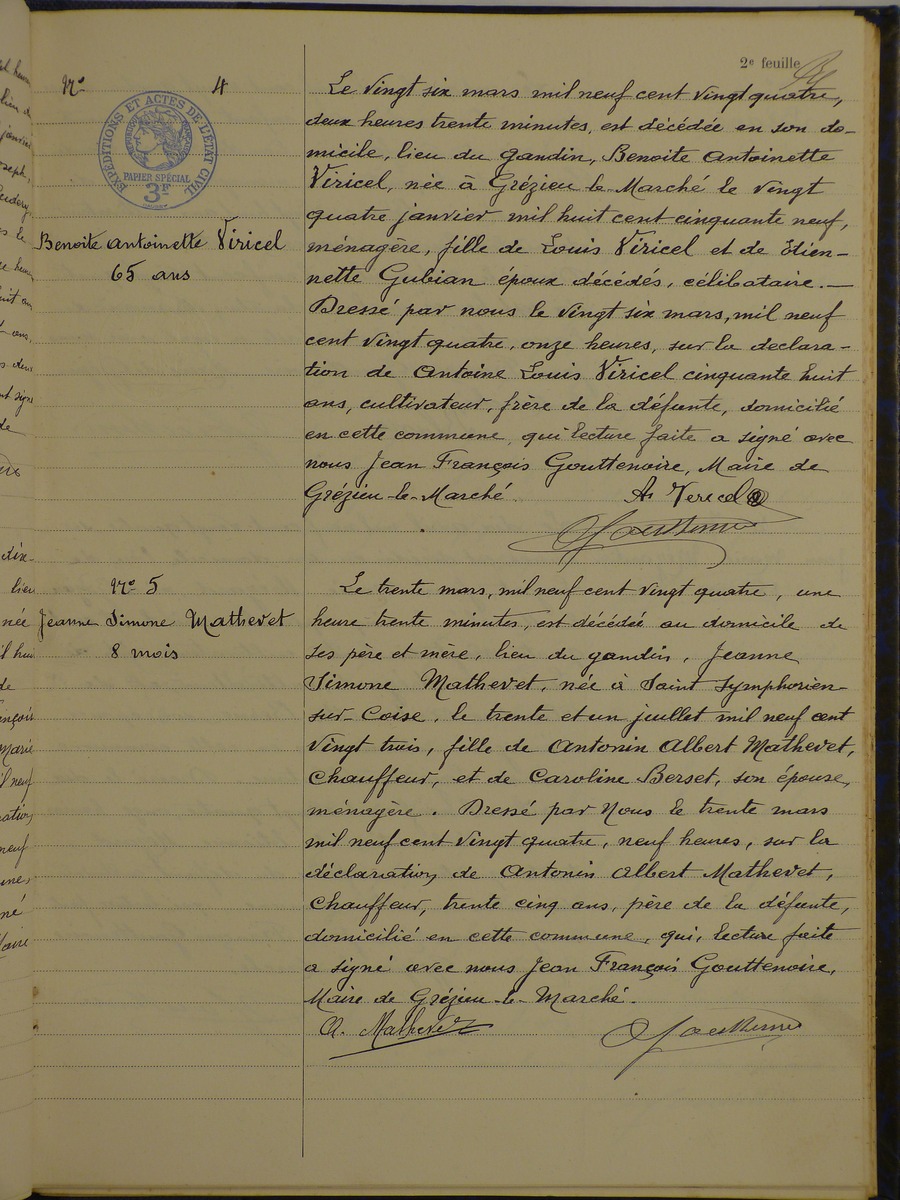 2e feuille
No 4
EXPÉDITIONS ET ACTES DE L'ÉTAT CIVIL
PAPIER SPÉCIAL
3F
Benoite Antoinette Viricel
65 ans
Le vingt six mars mil neuf cent vingt quatre,
deux heures trente minutes, est décédée en son do-
micile, lieu du gandin, Benoite Antoinette
Viricel, née à Grézieu-le-Marché le vingt
quatre janvier mil huit cent cinquante neuf,
ménagère, fille de Louis Viricel et de Etien-
nette Gubian époux décédés, célibataire. —
Dressé par nous le vingt six mars, mil neuf
cent vingt quatre, onze heures, sur la declara-
tion de Antoine Louis Viricel cinquante huit
ans, cultivateur, frère de la défunte, domicilié
en cette commune, qui lecture faite a signé avec
nous Jean François Gouttenoire, Maire de
Grézieu-le-Marché.
A Vericel
No 5
Jeanne Simone Mathevet
8 mois
Le trente mars, mil neuf cent vingt quatre, une
heure trente minutes, est décédée au domicile de
ses père et mère, lieu du gandin, Jeanne
Simone Mathevet, née à Saint Symphorien-
sur-Coise, le trente et un juillet mil neuf cent
vingt trois, fille de Antonin Albert Mathevet,
chauffeur, et de Caroline Berset, son épouse,
ménagère. Dressé par Nous le trente mars
mil neuf cent vingt quatre, neuf heures, sur la
déclaration de Antonin Albert Mathevet,
chauffeur, trente cinq ans, père de la défunte,
domicilié en cette commune, qui, lecture faite
a signé avec nous Jean François Gouttenoire,
Maire de Grézieu-le-Marché.
A. Mathevet